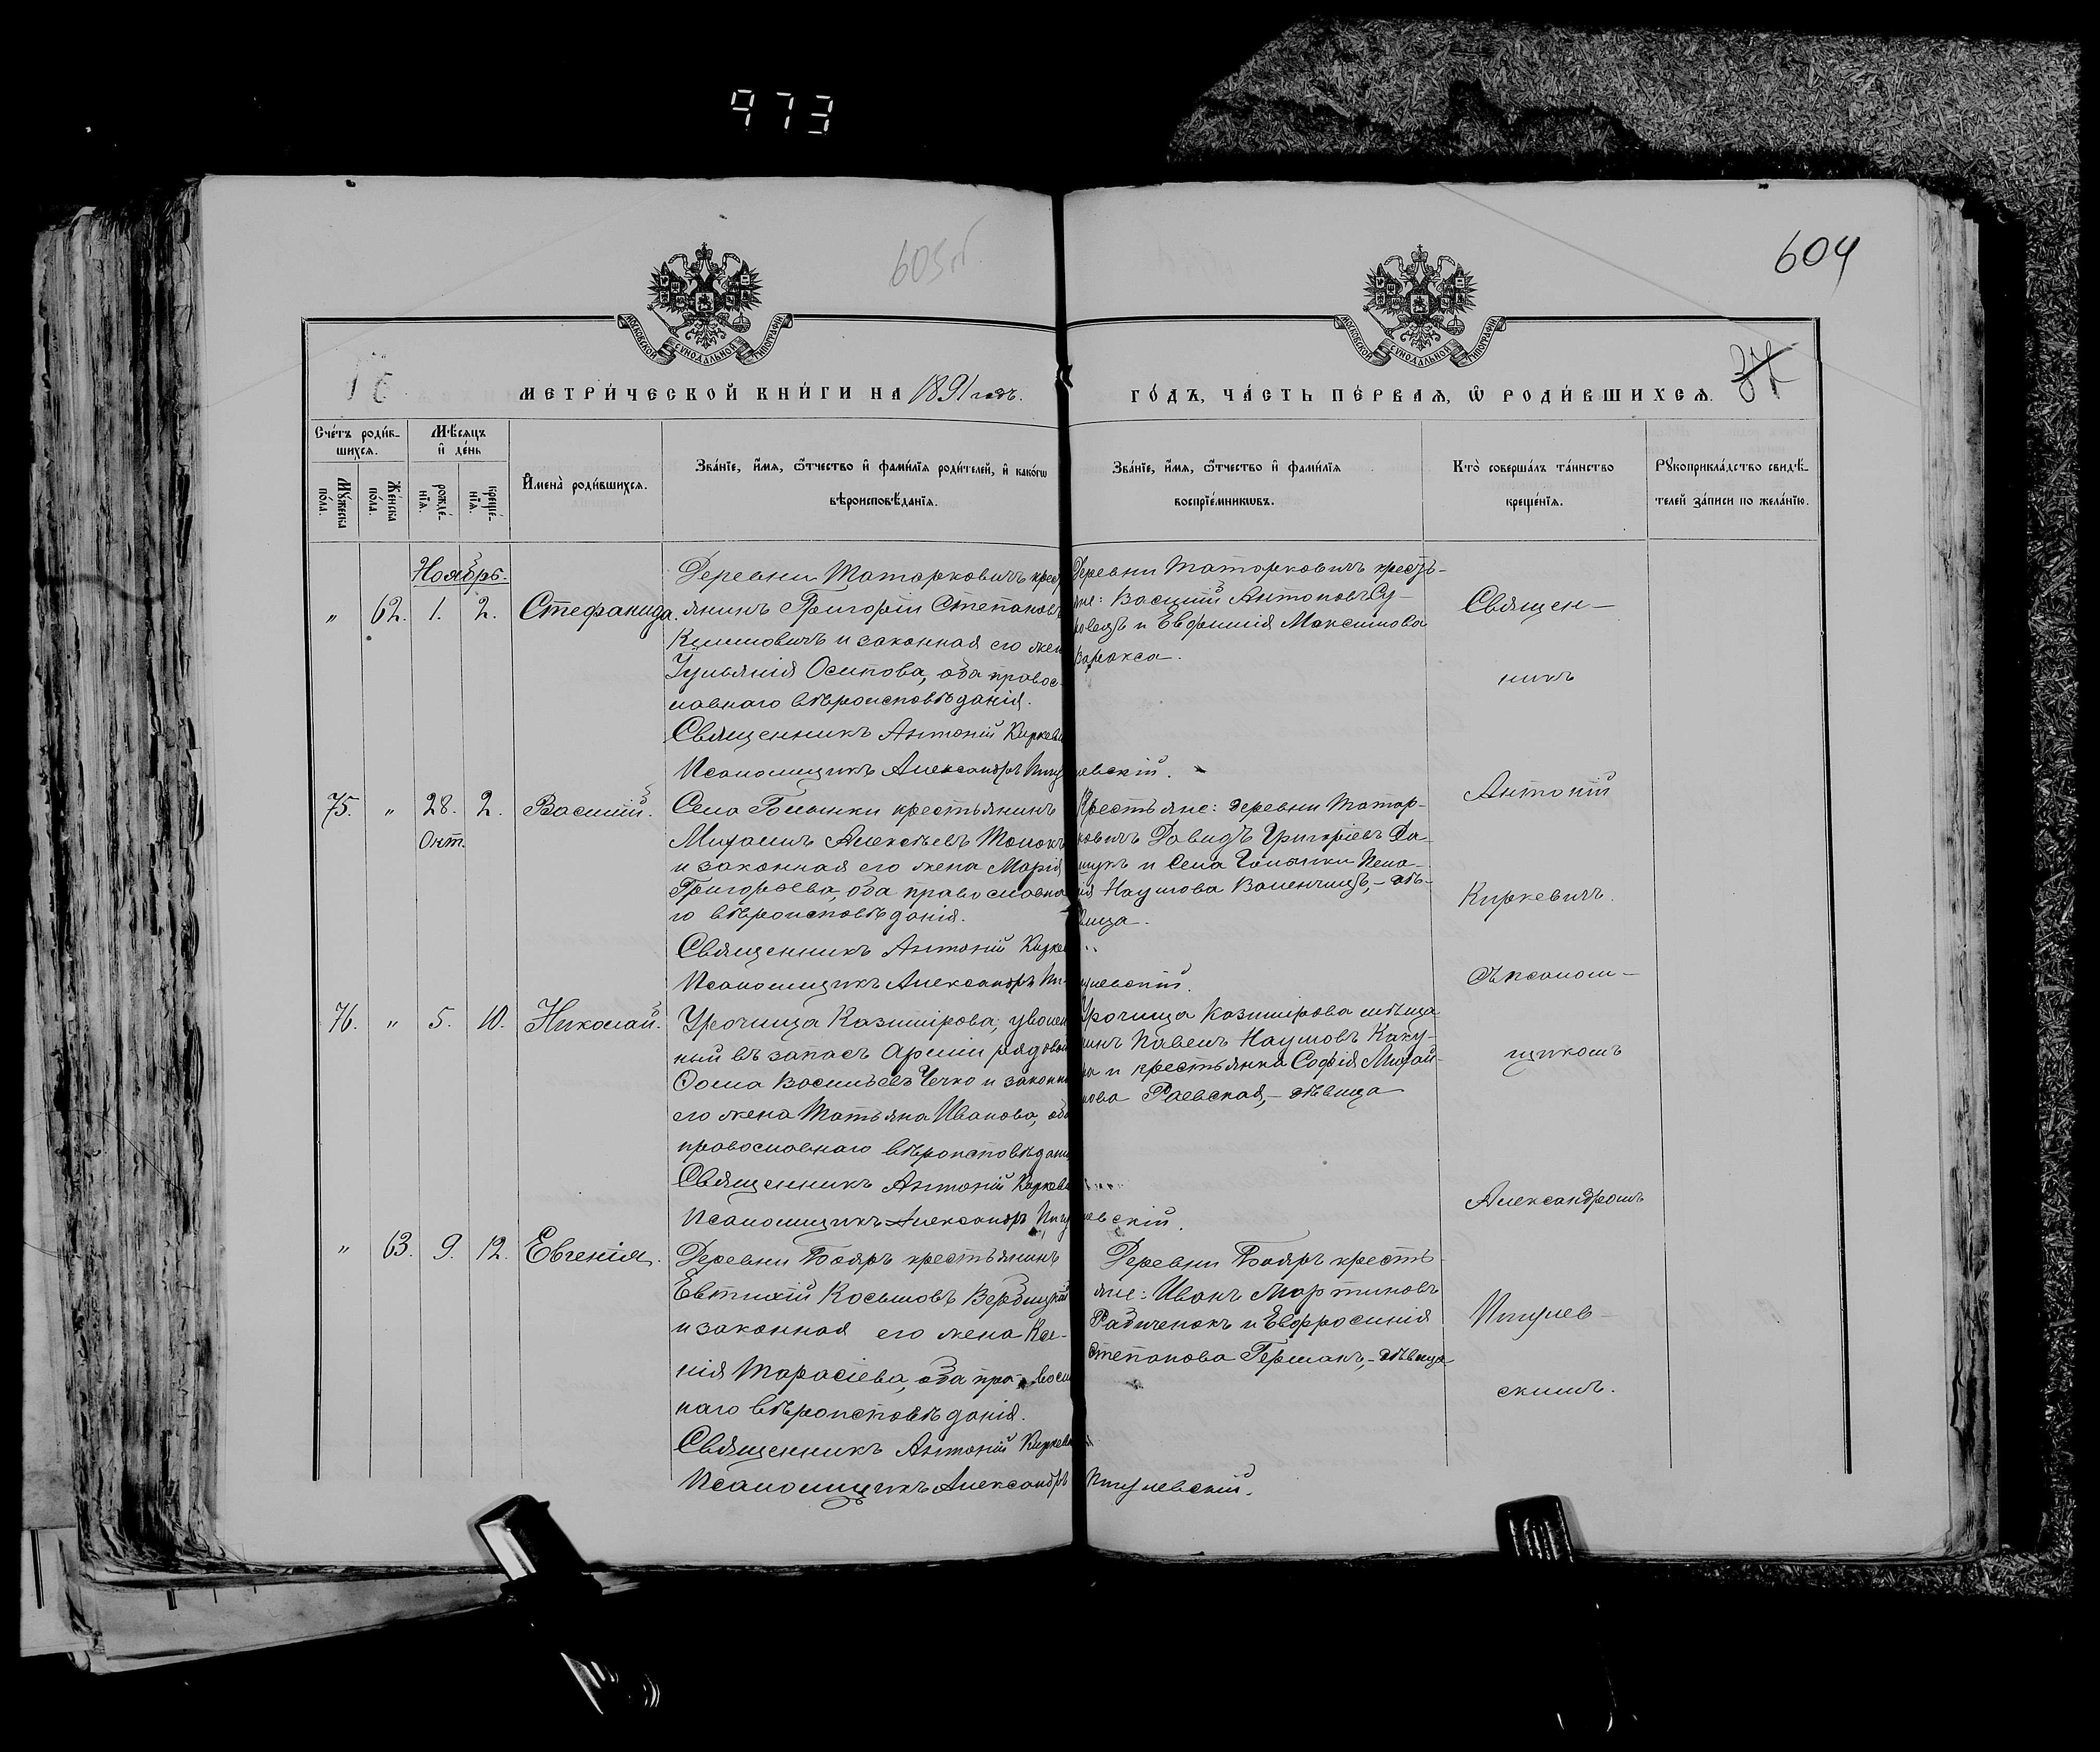 973
604
МОСКОВСКОЙ СѴНОДАЛЬНОЙ ТИПОГРАФІИ
МОСКОВСКОЙ СѴНОДАЛЬНОЙ ТИПОГРАФІИ
МЕТРИ́ЧЕСКОЙ КНИ́ГИ НА 1891 годъ.
ГО́ДЪ, ЧА́СТЬ ПЕ́РВАЯ, Ѿ РОДИ́ВШИХСЯ.
37
Сче́тъ роди́в-
шихся.
Мѣ́сяцъ
и҆ де́нь
Му́жеска по́ла.
Же́нска по́ла.
рожде́-
нїя.
креще́-
нїя.
И҆мена̀ роди́вшихся.
Зва́нїе, и҆́мя, ѻ҆́тчество и҆ фами́лїя роди́телей, и҆ како́гѡ
вѣроисповѣ́данїя.
Зва́нїе, и҆́мя, ѻ҆́тчество и҆ фами́лїя
воспрїе́мникѡвъ.
Кто̀ соверша́лъ та́инство
креще́нїя.
Рꙋкоприкла́дство свидѣ́-
телей за́писи по жела́нїю.
Ноябрь.
" 62. 1. 2. Стефанида.
Деревни Татарковичъ крест
янинъ Григорій Степановъ
Климовичъ и законная его жен
Іуліанія Осипова, оба правос-
лавнаго вѣроисповѣданія.
Священникъ Антоній Киркеви
Псаломщикъ Александръ Пигу
левскій.
Деревни Татарковичъ кресть-
яне: Василій Антоновъ Су-
ровецъ и Евфимія Максимова
Варакса.
75. " 28. 2. Василій.
Окт.
Села Голынки крестьянинъ
Михаилъ Алексѣевъ Толокъ
и законная его жена Марія
Григорьева, оба православна
го вѣроисповѣданія.
Священникъ Антоній Кирке
Псаломщикъ Александръ Пи-
гулевскій.
Крестьяне: деревни Татар-
ковичъ Давидъ Григоріевъ Да-
и села Голынки Пела-
гія Наумова Валенчицъ, - дѣ-
вица.
76. " 5. 10. Николай.
Урочища Казимірова, уволен
ный въ запасъ Арміи рядовой
Ѳома Васильевъ Чечко и законн
его жена Татьяна Иванова, оба
православнаго вѣроисповѣдані
Священникъ Антоній Киркеви
Псаломщикъ Александръ Пигу
левскій.
Урочища Казимірова мѣща
нинъ Павелъ Наумовъ Каку-
ра и крестьянка Софія Михай-
лова Раевская, - дѣвица
" 63. 9. 12. Евгенія.
Деревни Бояръ крестьянинъ
Евтихій Косьмовъ Вербицкій
и законная его жена Ксе-
нія Тарасіева, оба православ
наго вѣроисповѣданія.
Священникъ Антоній Киркеви
Псаломщикъ Александръ Пигулевскій.
Деревни Бояръ кресть-
яне: Иванъ Мартиновъ
Радиченокъ и Евфросинія
Степанова Германъ, - дѣвица
Священ-
никъ
Антоній
Киркевичъ.
съ псалом-
щикомъ
Александромъ
Пигулев-
скимъ.